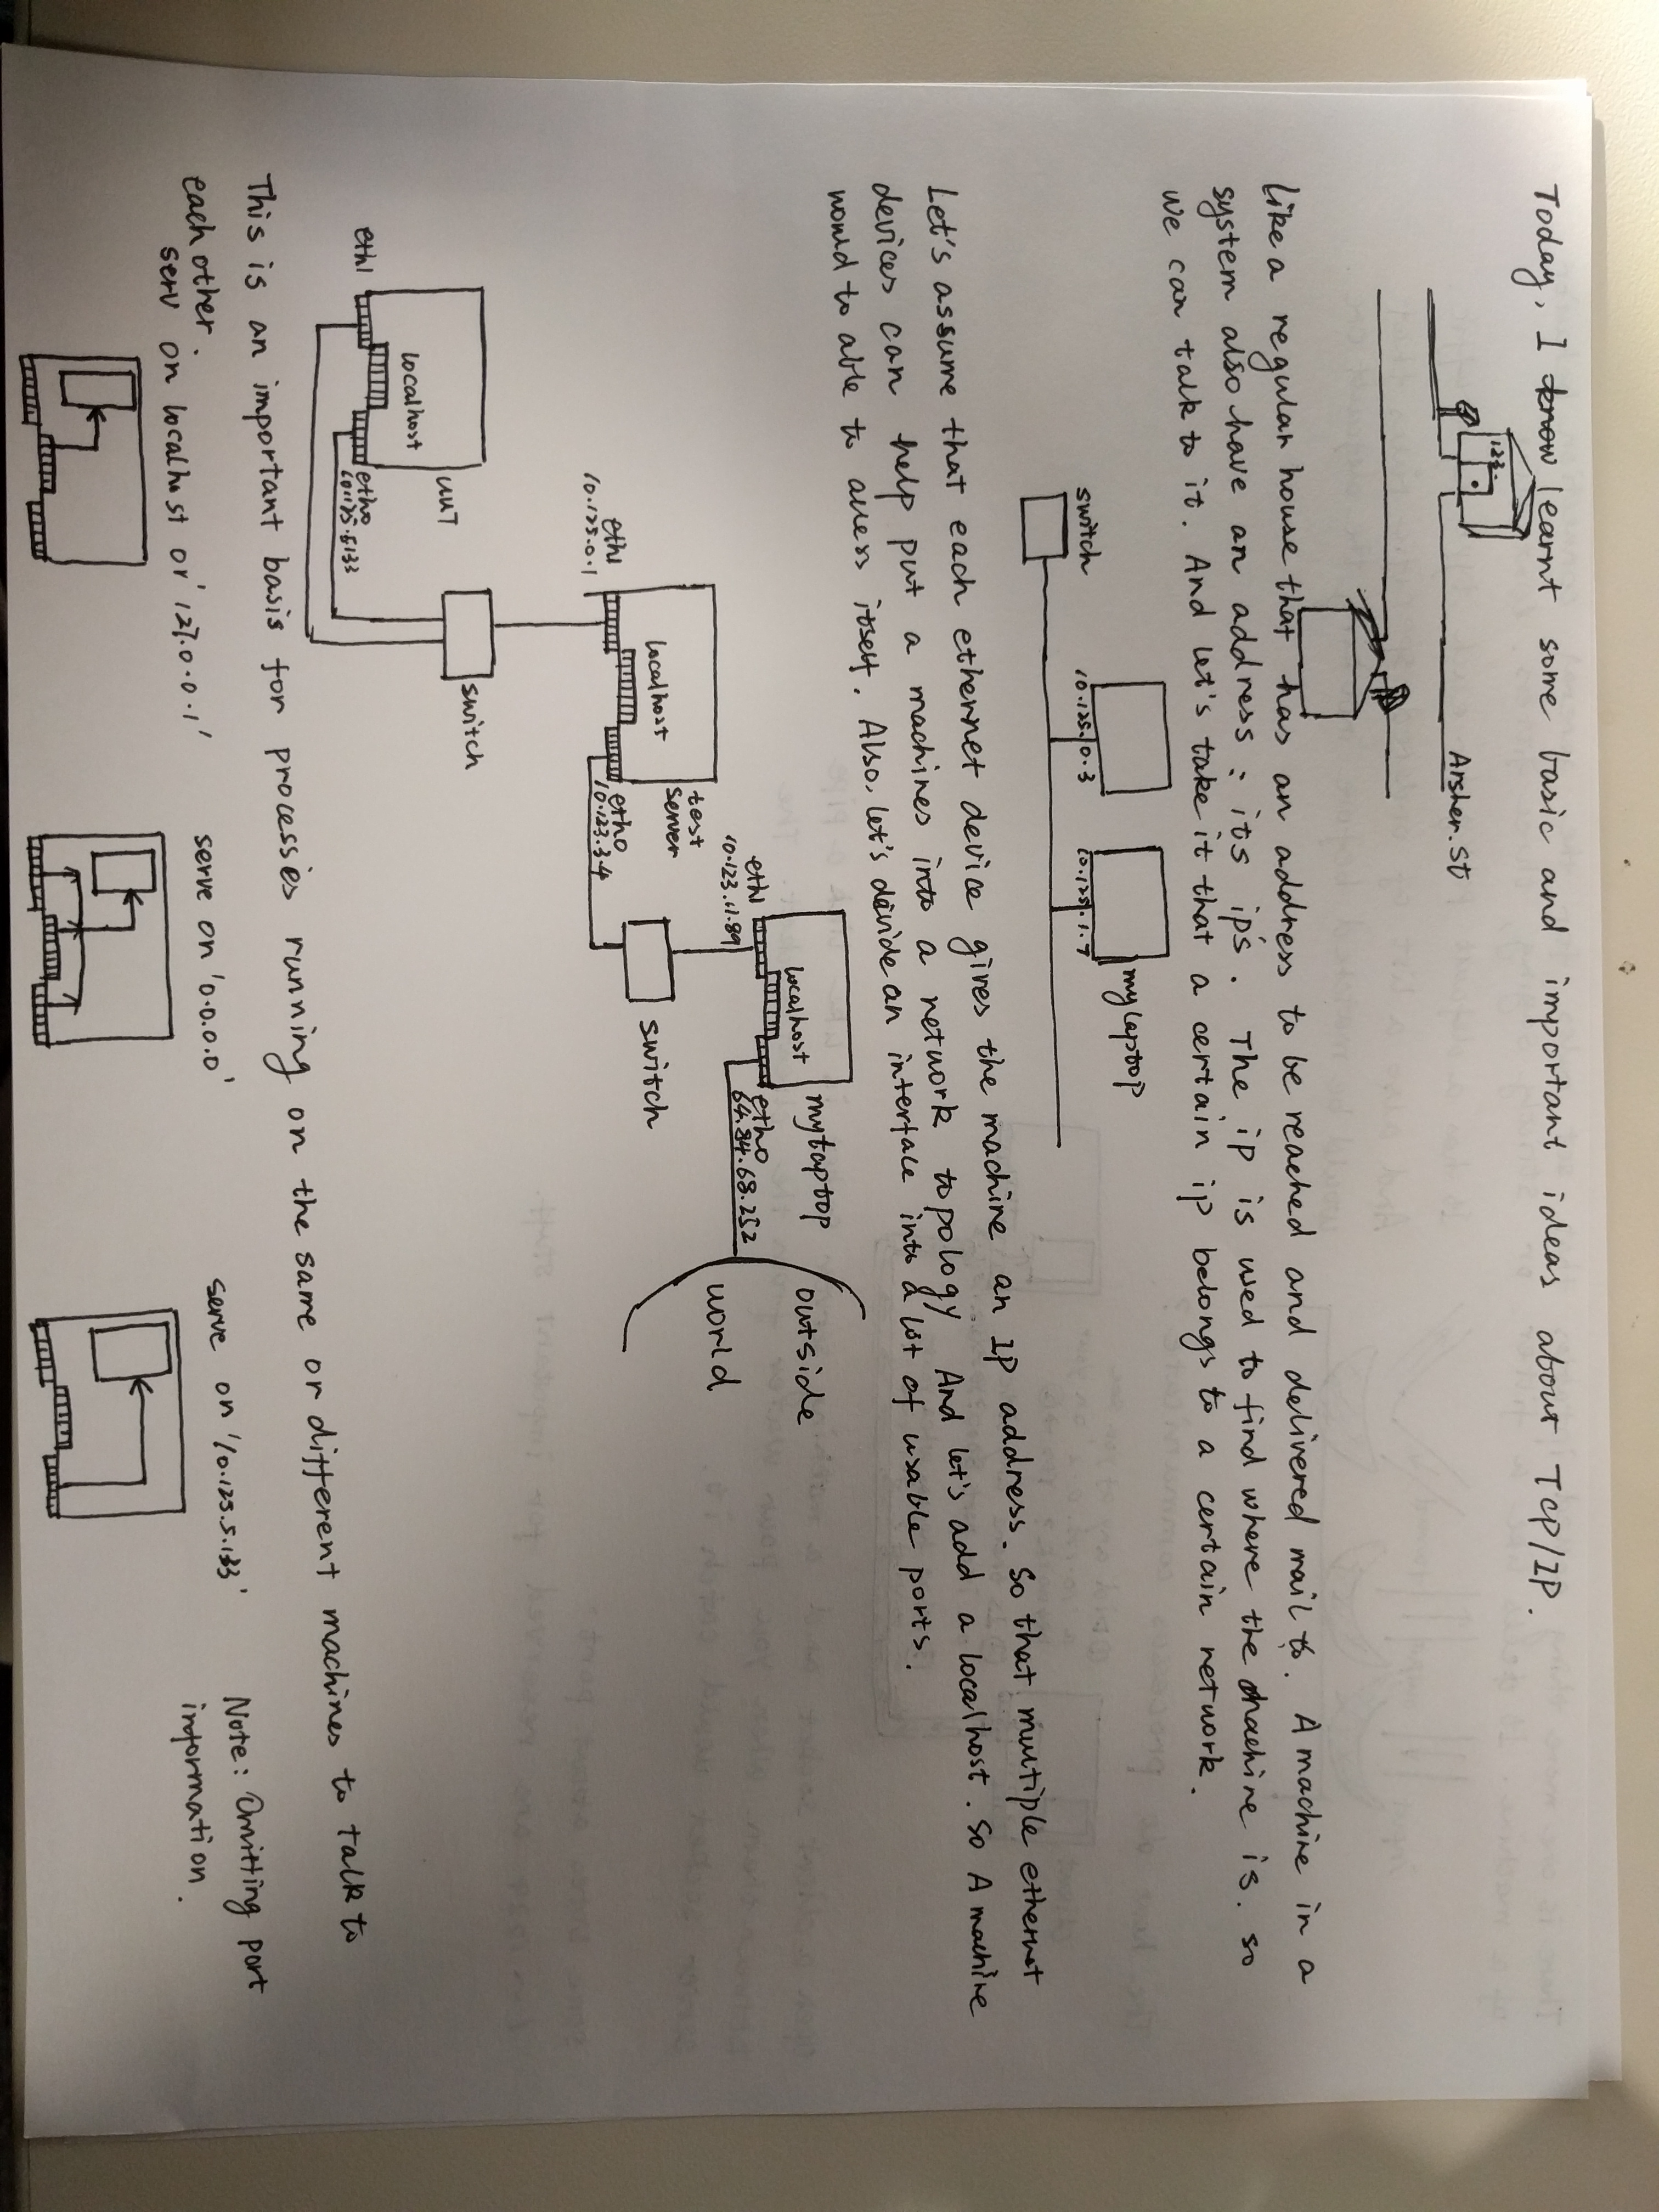 Today, I know learnt some basic and important ideas about TCP/IP.
123
Arsher.st
Like a regular house that has an address to be reached and delivered mail to. A machine in a
system also have an address: its ip's. The ip is used to find where the machine is. so
we can talk to it. And let's take it that a certain ip belongs to a certain network.
switch
10.125.0.3
10.125.1.7
mylaptop
Let's assume that each ethernet device gives the machine an IP address. So that multiple ethernet
devices can help put a machines into a network topology. And let's add a localhost. So A machine
would to able to access itself. Also, let's devide an interface into a lot of usable ports.
localhost
mylaptop
eth1
10.123.11.89
eth0
64.84.68.252
outside
world
localhost
test
server
eth1
10.125.0.1
eth0
10.123.3.4
switch
localhost
UUT
eth1
eth0
10.125.5.133
switch
This is an important basis for processes running on the same or different machines to talk to
each other.
serv on localhost or '127.0.0.1'
serve on '0.0.0.0'
serve on '10.125.5.133'
Note: Omitting port
information.